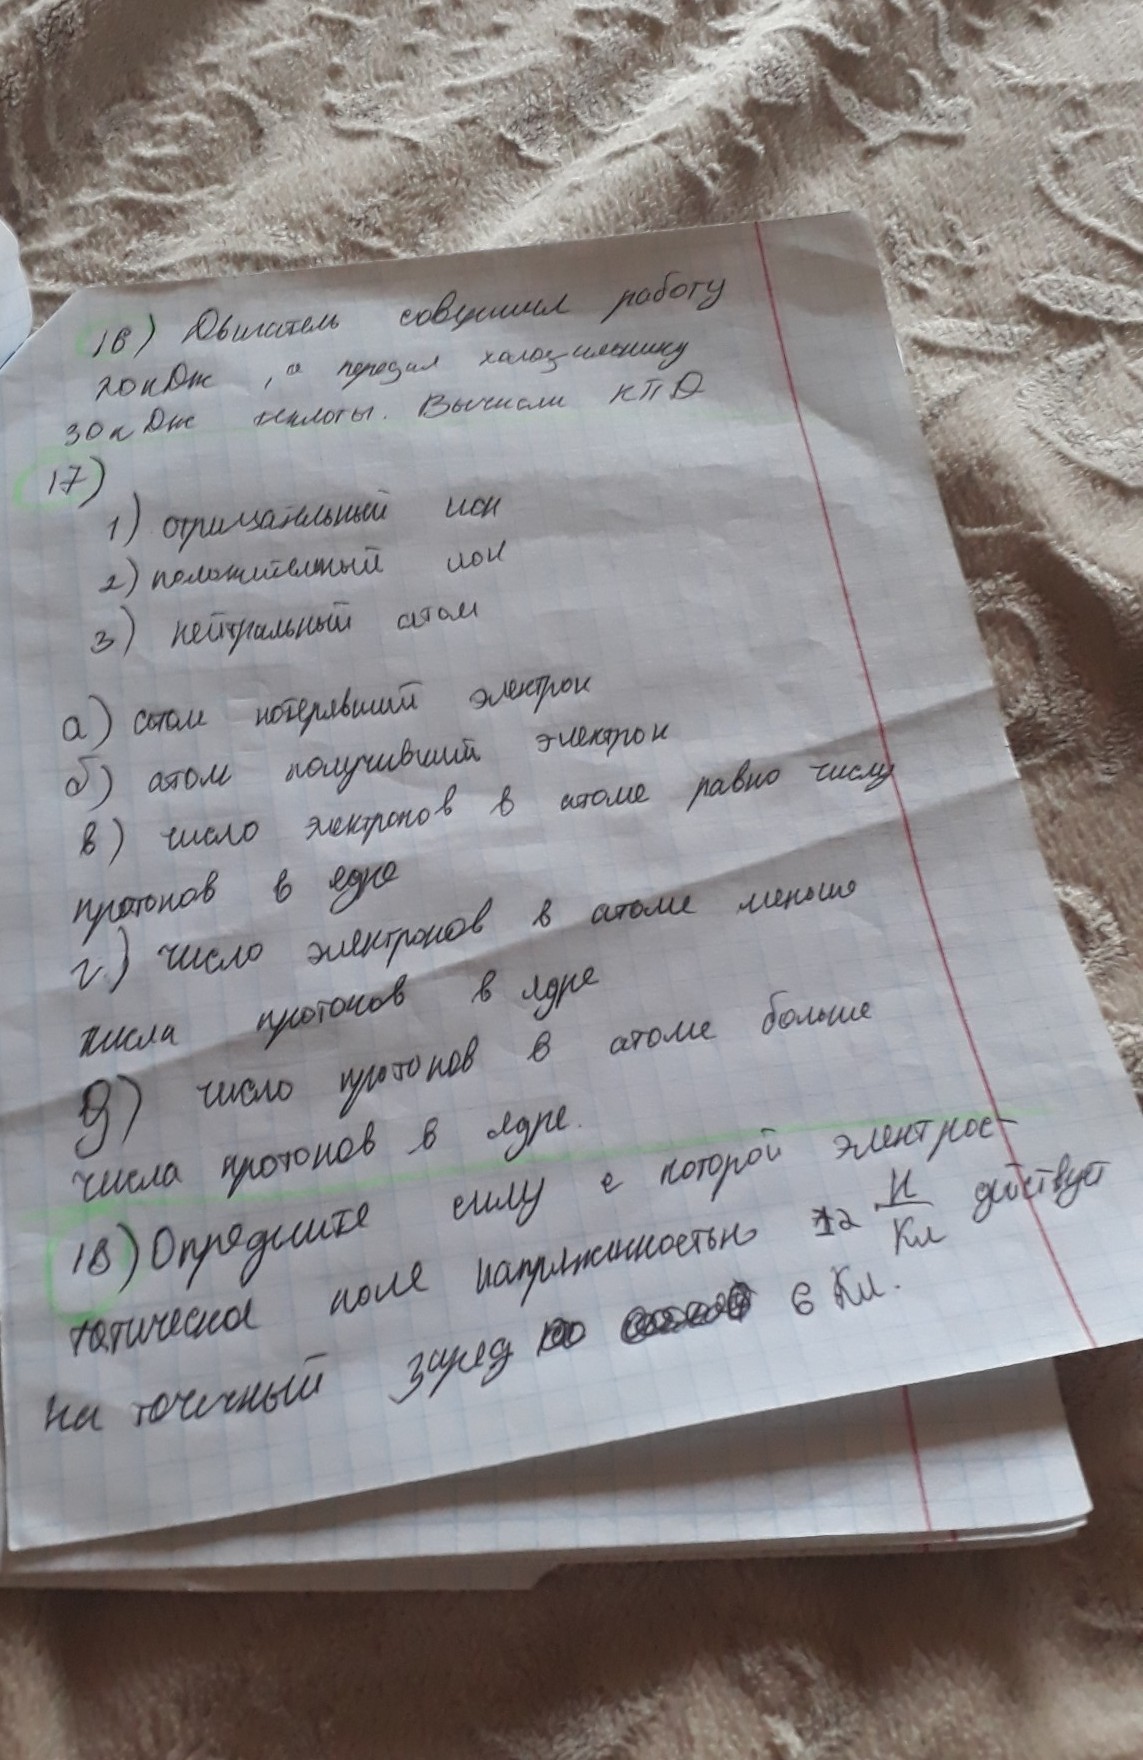 16) Двигатель совершил работу
20кДж, а передал холодильнику
30кДж теплоты. Вычисли КПД
17)
1) отрицательный ион
2) положительный ион
3) нейтральный атом
а) атом потерявший электрон
б) атом получивший электрон
в) число электронов в атоме равно числу
протонов в ядре
г) число электронов в атоме меньше
числа протонов в ядре
д) число протонов в атоме больше
числа протонов в ядре.
18) Определите силу с которой электрос-
татическое поле напряженностью 12 Н/Кл действует
на точечный заряд 6 Кл.